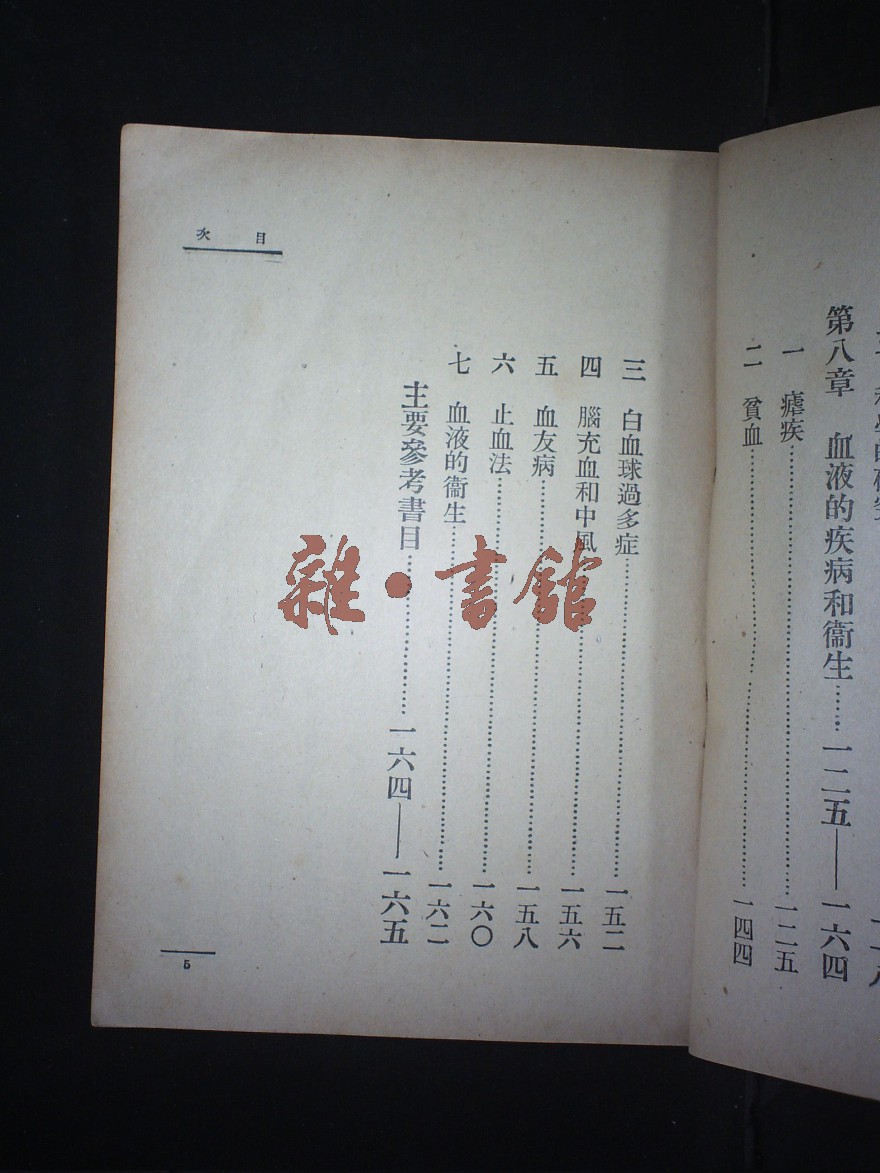 第八章　血液的疾病和衞生……一二五——一六四
一　瘧疾……一二五
二　貧血……一四四
目次
三　白血球過多症……一五二
四　腦充血和中風……一五六
五　血友病……一五八
六　止血法……一六〇
七　血液的衞生……一六二
主要參考書目……一六四——一六五
5
雜·書館